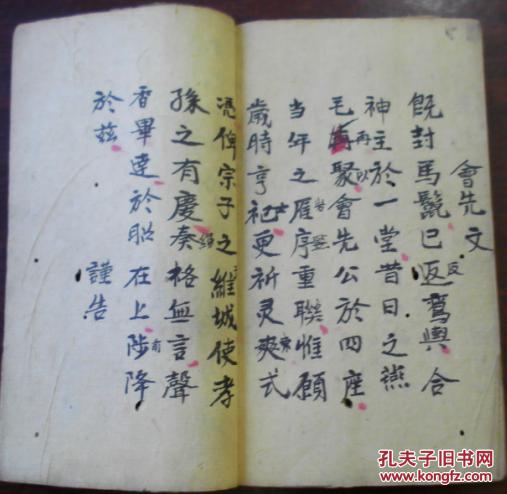 會先文
既封馬鬣已返鸞輿合
神主於一堂昔日之燕
毛再聚會先公於四座
当年之雁序重联惟願
歲時亨祀更祈灵爽式
凭俾宗子之維城使孝
孫之有慶奏格無言聲
香畢達於昭在上陟降
於兹 謹告
孔夫子旧书网
www.kongfz.com